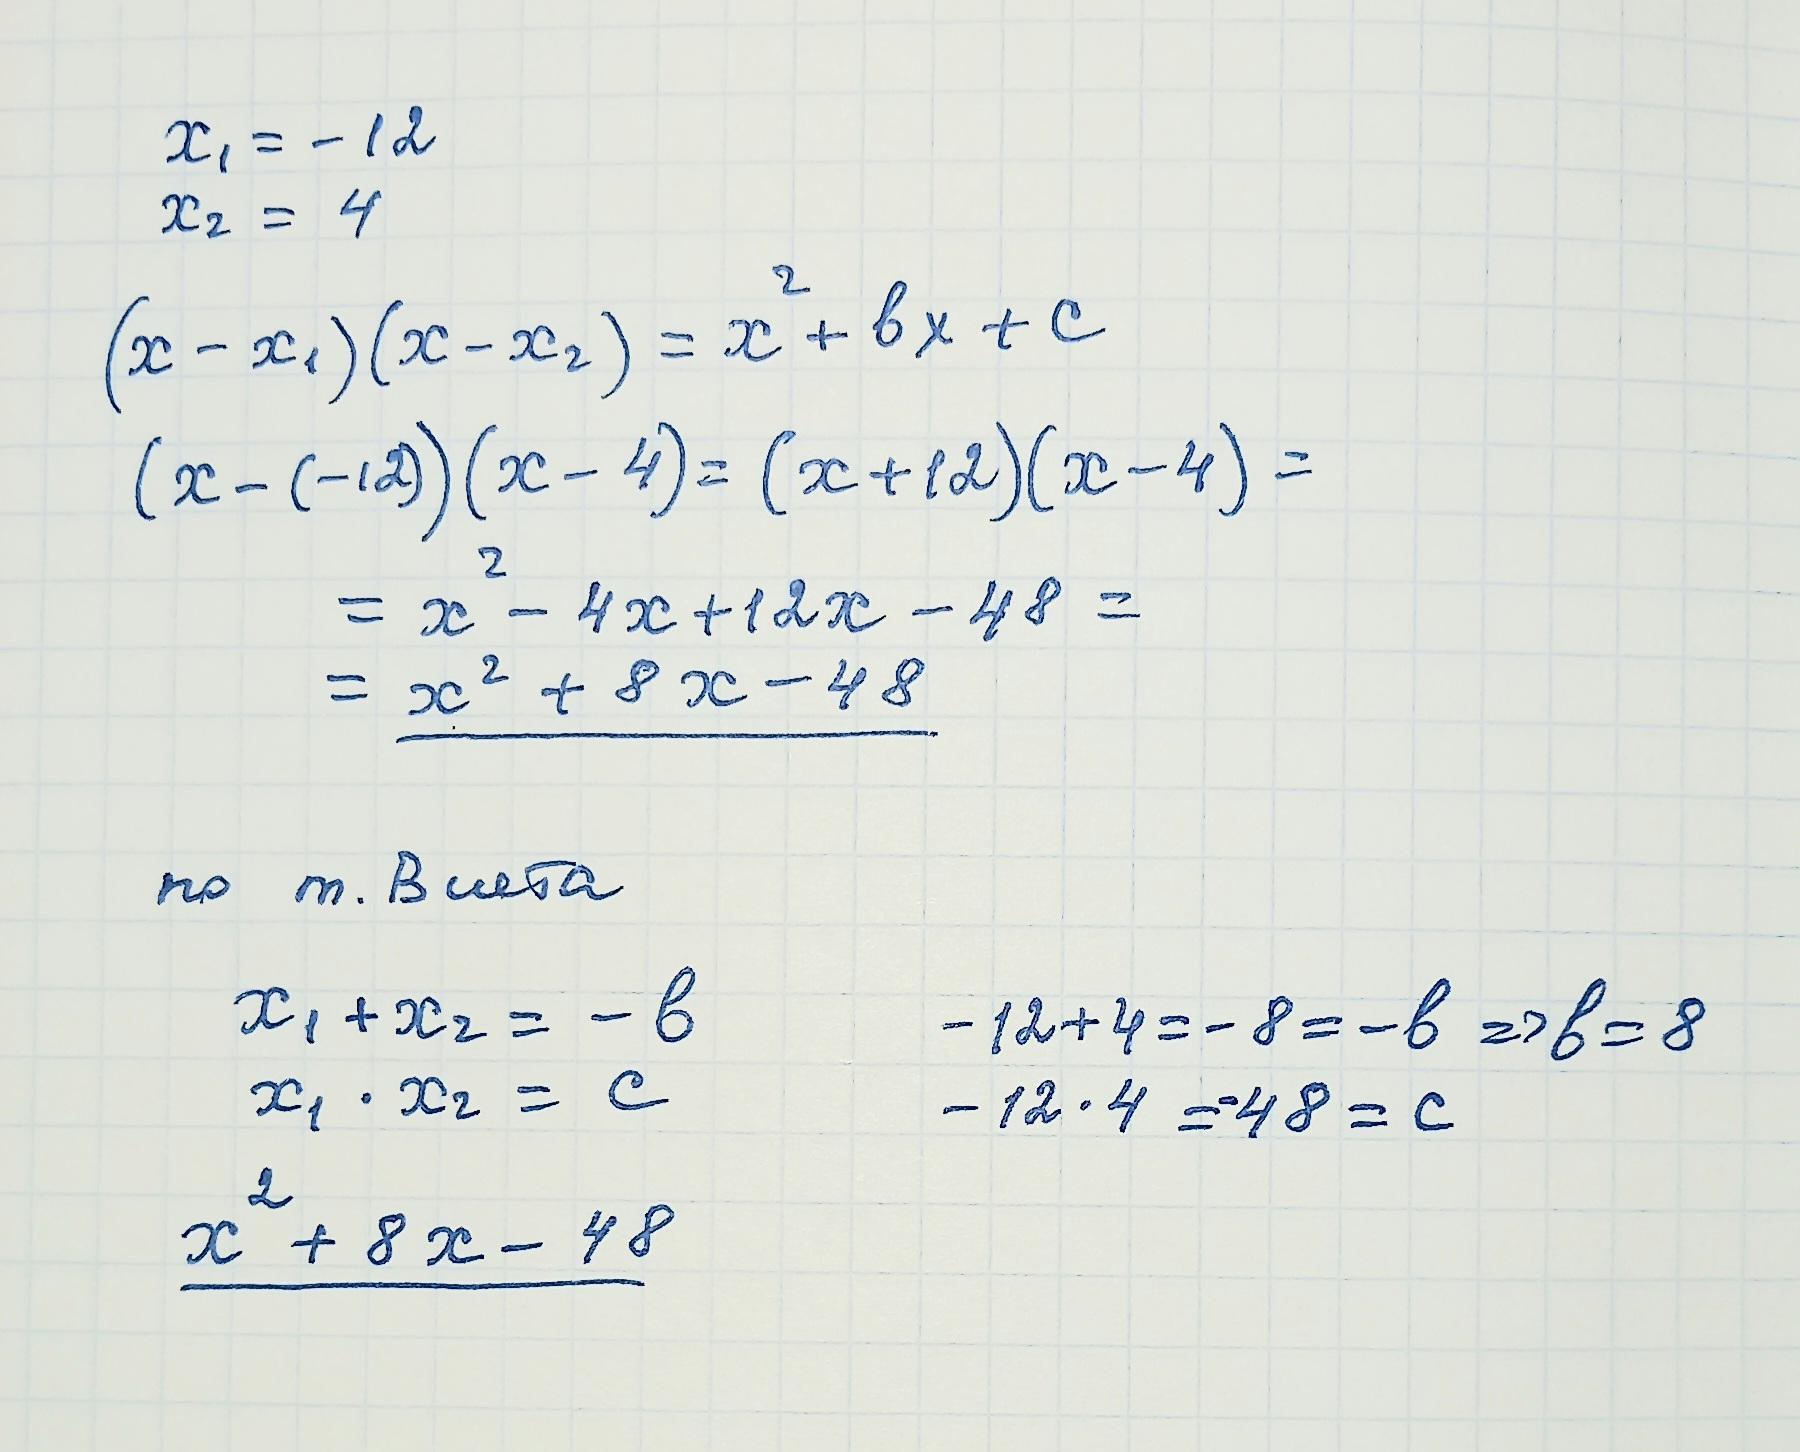 x₁ = -12
x₂ = 4
(x - x₁)(x - x₂) = x² + bx + c
(x - (-12))(x - 4) = (x + 12)(x - 4) =
= x² - 4x + 12x - 48 =
= x² + 8x - 48
по т. Виета
x₁ + x₂ = -b -12 + 4 = -8 = -b => b = 8
x₁ · x₂ = c -12 · 4 = -48 = c
x² + 8x - 48